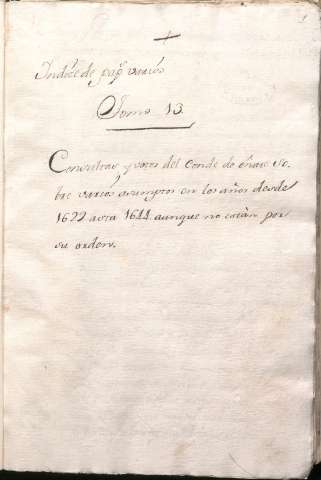 1
Indize de papˢ varios
Tomo 13.
Consultas, y votos del Conde de so,
bre varios asumptos en los años desde
1622 asta 1644 aunque no están por
su orden.